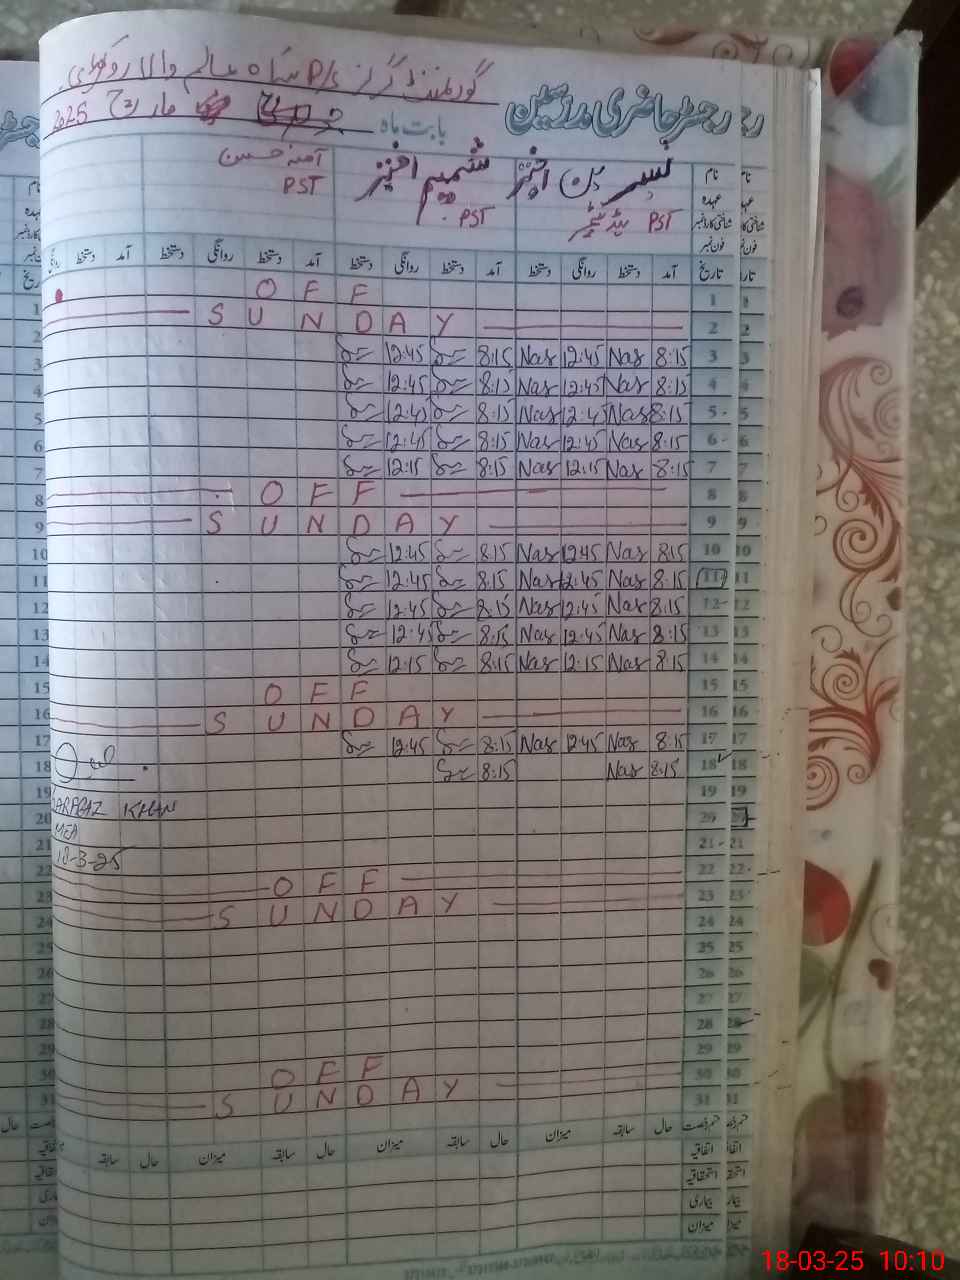 رجسٹر حاضری مدرسین
گورنمنٹ گرلز P/S شاہ عالم والا روکھڑی
بابت ماہ مارچ 2025
نام نسرین اختر شمیم اختر آمنہ حسین
عہدہ PST ہیڈ ٹیچر PST PST
شناختی کارڈ نمبر
فون نمبر
تاریخ آمد دستخط روانگی دستخط آمد دستخط روانگی دستخط آمد روانگی دستخط آمد دستخط روانگی
1 O F F
2 S U N D A Y
3 8:15 Nas 12:45 Nas 8:15 12:45
4 8:15 Nas 12:45 Nas 8:15 12:45
5 8:15 Nas 12:45 Nas 8:15 12:45
6 8:15 Nas 12:45 Nas 8:15 12:45
7 8:15 Nas 12:15 Nas 8:15 12:15
8 O F F
9 S U N D A Y
10 8:15 Nas 12:45 Nas 8:15 12:45
11 8:15 Nas 12:45 Nas 8:15 12:45
12 8:15 Nas 12:45 Nas 8:15 12:45
13 8:15 Nas 12:45 Nas 8:15 12:45
14 8:15 Nas 12:15 Nas 8:15 12:15
15 O F F
16 S U N D A Y
17 8:15 Nas 12:45 Nas 8:15 12:45
18 8:15 Nas 8:15
19
20 KHAN
21 MEA
22 O F F 18-3-25
23 S U N D A Y
24
25
26
27
28
29
30 O F F
31 S U N D A Y
حال سابقہ میزان حال سابقہ میزان حال سابقہ میزان حال سابقہ
اتفاقیہ
استحقاقیہ
بیماری
میزان
18-03-25 10:10